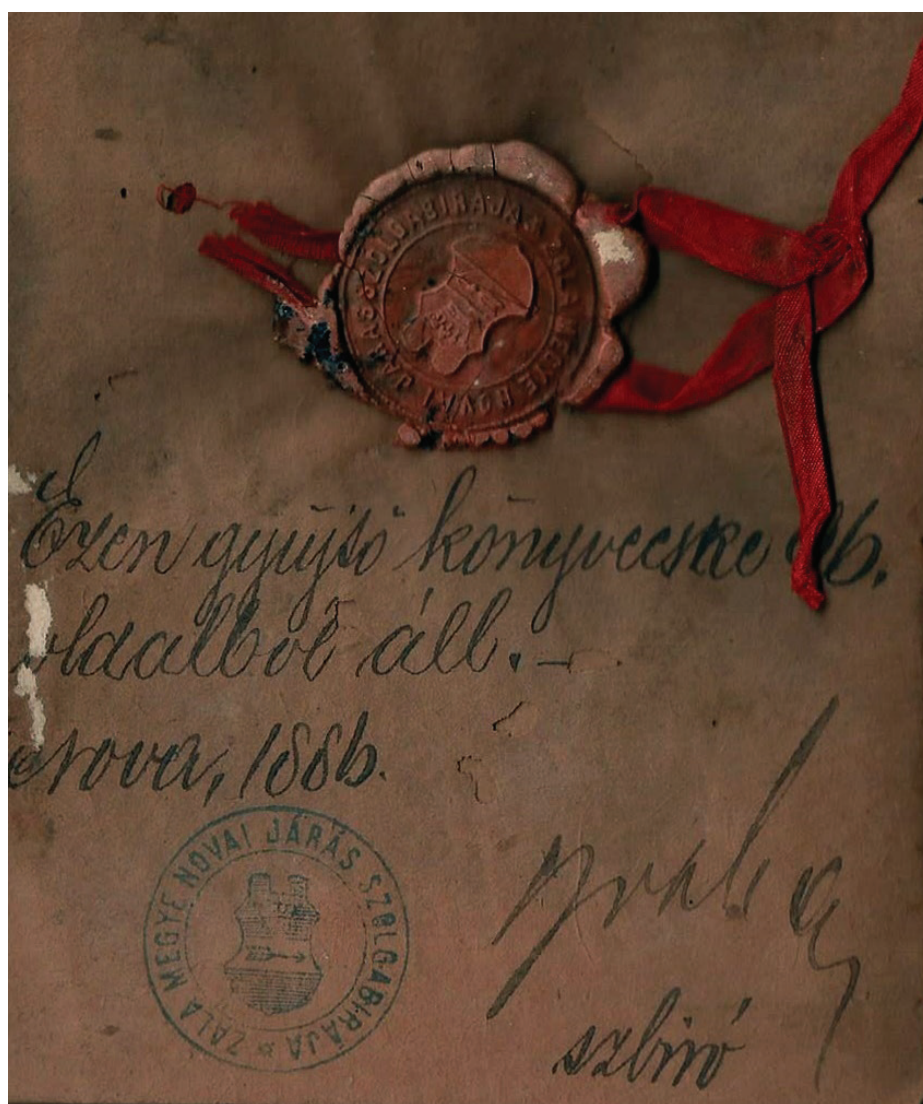 ZALA MEGYE NOVAI JÁRÁS SZOLGABIRÁJA
Ezen gyüjtő könyvecske
oldalból áll.–
Nova, 1886.
ZALA MEGYE NOVAI JÁRÁS SZOLGABIRÁJA
szbiró